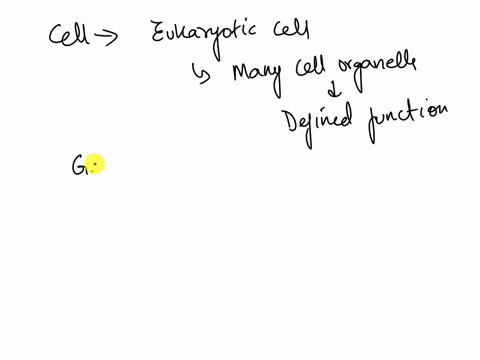 Cell → Eukaryotic cell
↳ Many cell organelle
↓
Defined function
G